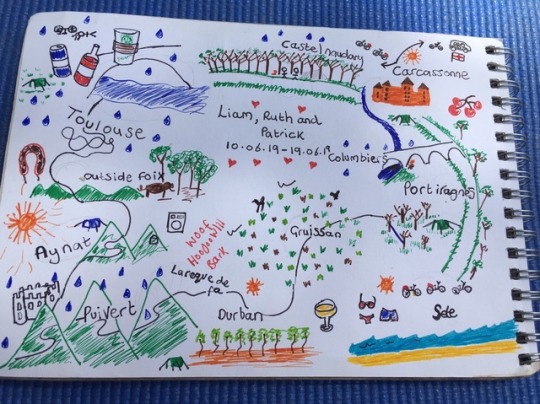 Castelnaudary
Carcassonne
Toulouse
Liam, Ruth and
Patrick
10.06.19-19.06.19
Columbiers
outside Foix
Portiragnes
Aynat
WOOF
HOOWOWlll
BARK
Gruissan
Laroque de
fa
Puivert
Durban
Sète